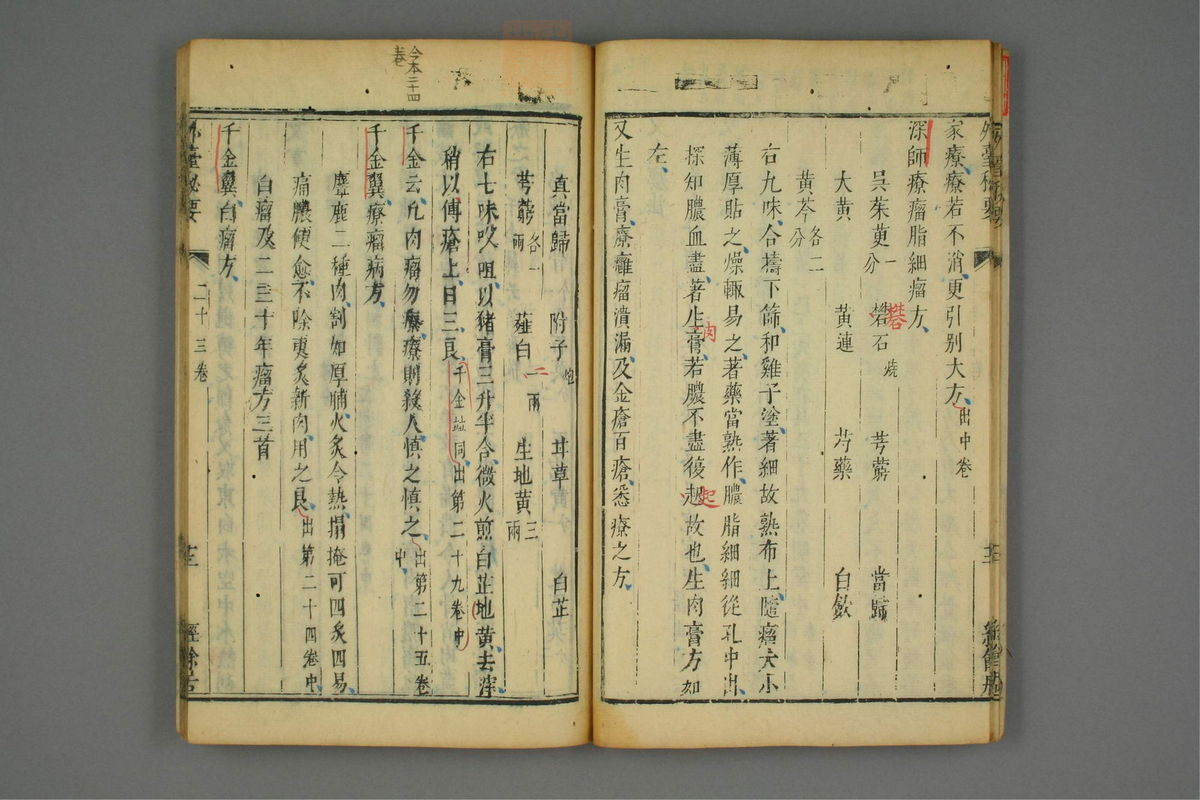 家療療若不消更引别大方出中卷
深師療瘤脂細瘤方
吳茱萸一分 礬石燒 芎藭 當歸
大黃 黃連 芍藥 白歛
黃芩各二分
右九味合擣下篩和雞子塗著細故熟布上隨瘤大小
薄厚貼之燥輙易之著藥當熟作膿脂細細從孔中出
探知膿血盡著生膏若膿不盡復起故也生肉膏方如
肉
起
左
又生肉膏療癰瘤潰漏及金瘡百瘡悉療之方
今本二十四卷
真當歸 附子炮 甘草 白芷
芎藭各一兩 薤白二兩 生地黃三兩
右七味㕮咀以猪膏三升半合微火煎白芷地黃去滓
稍以傅瘡上日三良千金並同出第二十九卷中
千金云凡肉瘤勿療療則殺人慎之慎之出第二十五卷中
千金翼療瘤病方
麞鹿二種肉割如厚脯火炙令熱搨掩可四炙四易
痛膿便愈不除更炙新肉用之良出第二十四卷中
白瘤及二三十年瘤方三首
千金翼白瘤方
外臺秘要 二十三卷 十三 經餘居